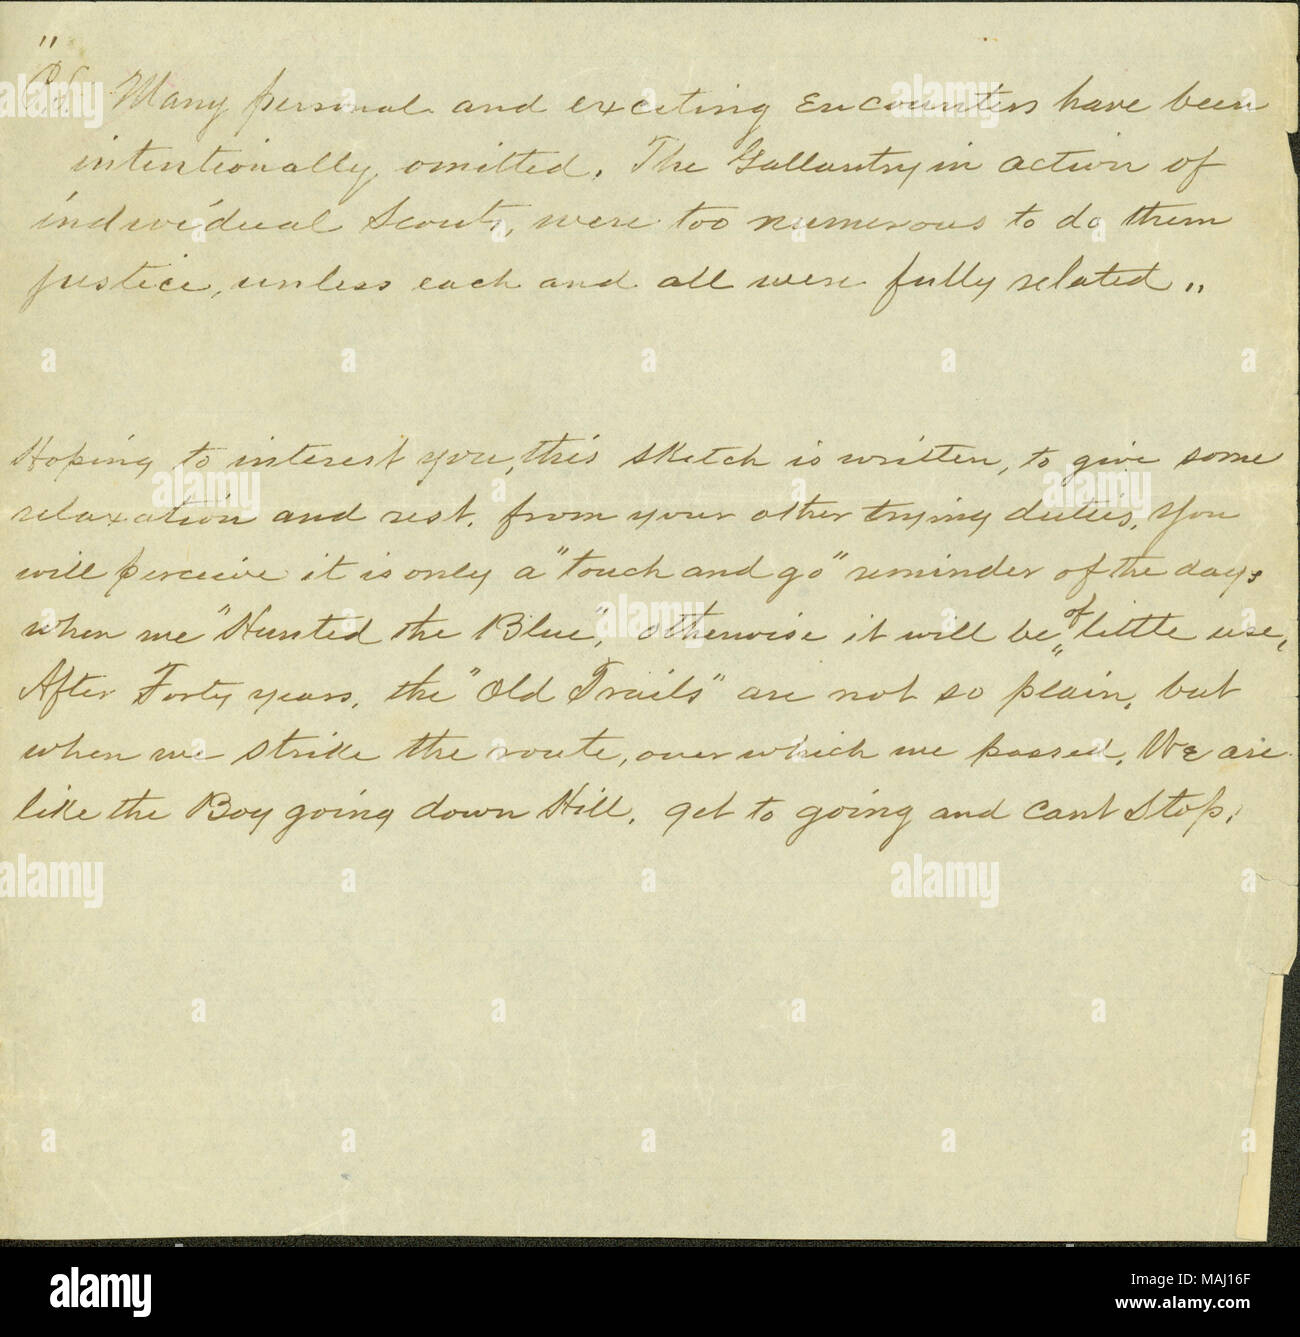 "
P.S. Many personal and exciting Encounters have been
intentionally omitted. The Gallantry in action of
individual Scouts, were too numerous to do them
justice, unless each and all were fully related."
Hoping to interest you, this sketch is written, to give some
relaxation and rest. from your other trying duties. You
will perceive it is only a "touch and go" reminder of the days
when we "Hunted the Blue", otherwise it will be of little use,
After Forty years, the "Old Trails" are not so plain, but
when we strike the route, over which we passed. We are
like the Boy going down Hill. get to going and cant Stop.
alamy
Image ID: MAJ16F
www.alamy.com